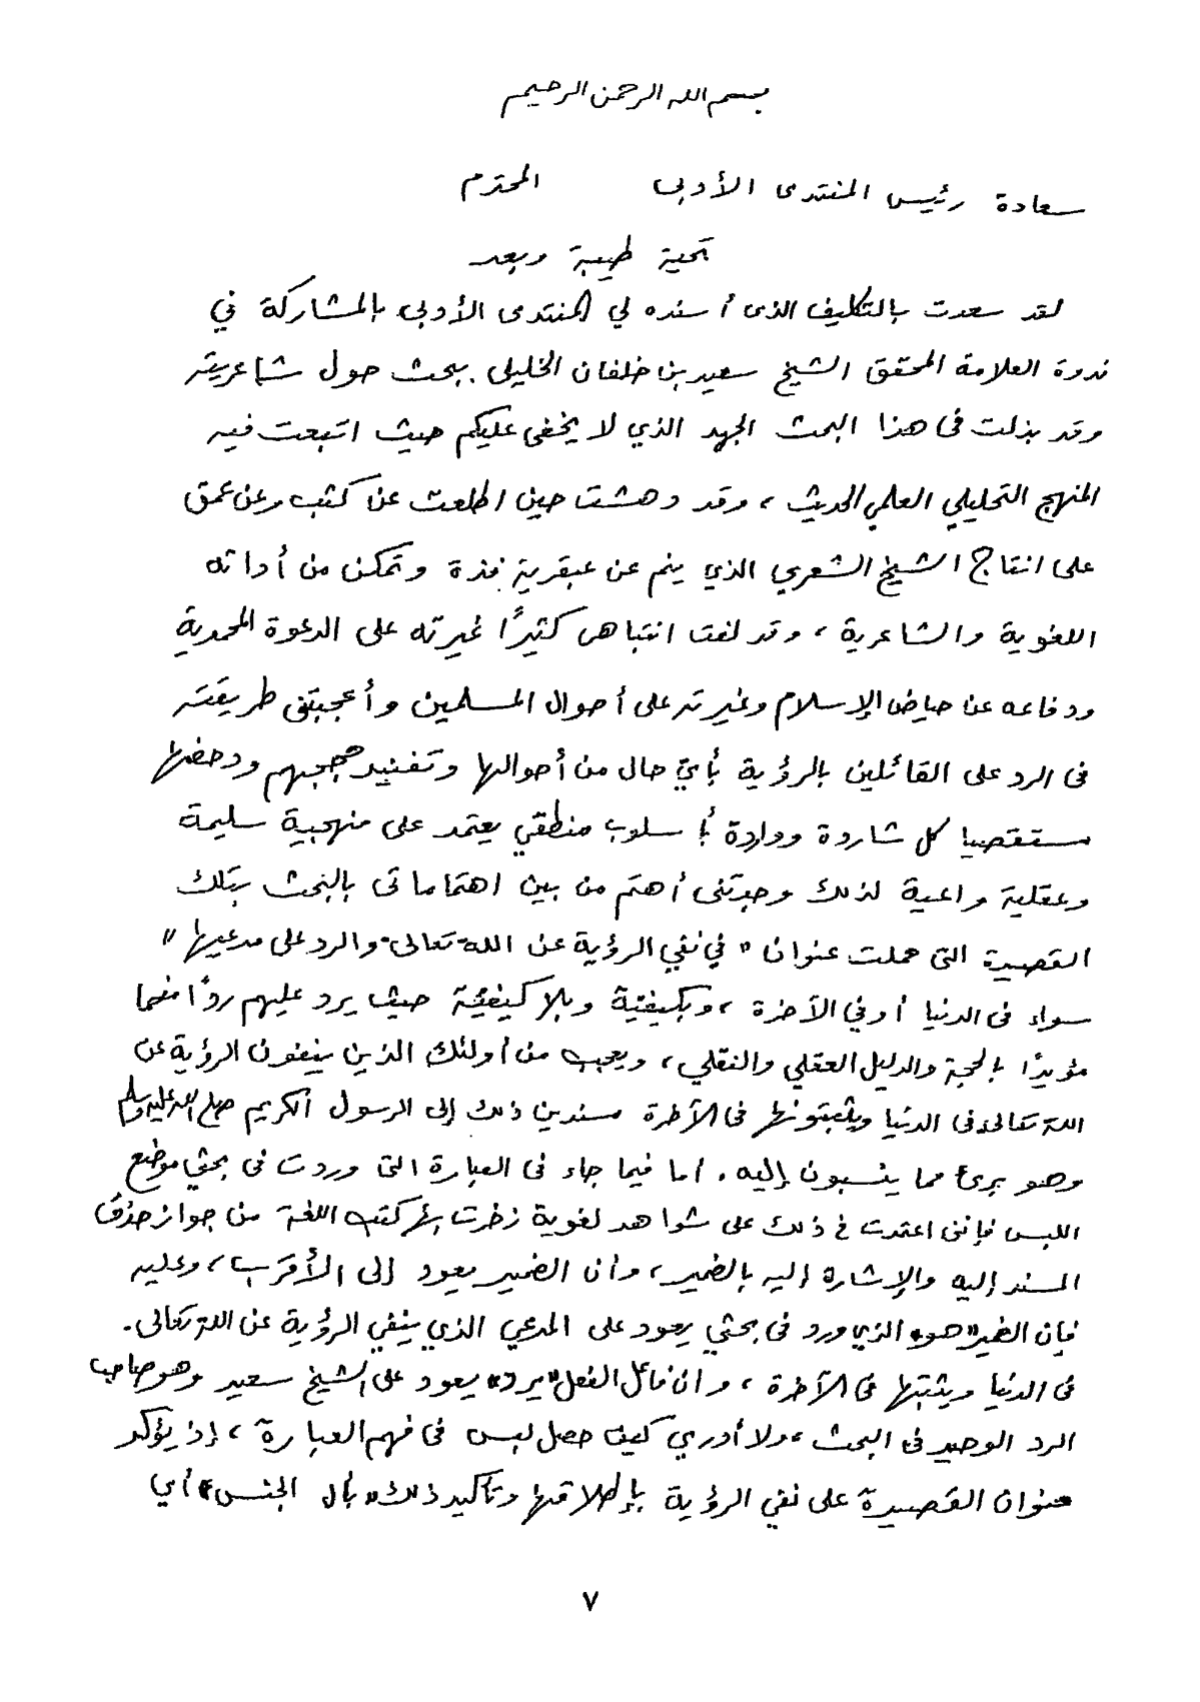 بسم الله الرحمن الرحيم
سعادة رئيس المنتدى الأدبى المحترم
تحية طيبة وبعد
لقد سعدت بالتكليف الذى أسنده لي المنتدى الأدبى بالمشاركة في
ندوة العلامة المحقق الشيخ سعيد بن خلفان الخليلى . ببحث حول شاعريته
وقد بذلت فى هذا البحث الجهد الذي لا يخفى عليكم حيث اتبعت فيه
المنهج التحليلي العلمي الحديث ، وقد دهشت حين اطلعت عن كثب وعن عمق
على انتاج الشيخ الشعري الذي ينم عن عبقرية فذة وتمكن من أداته
اللغوية والشاعرية ، وقد لفت انتباهى كثيرًا غيرته على الدعوة المحمدية
ودفاعه عن حياض الإسلام وغيرته على أحوال المسلمين وأعجبتنى طريقته
فى الرد على القائلين بالرؤية بأيّ حال من أحوالها وتفنيد حججهم ودحضها
مستقصيا كل شاردة وواردة بأسلوب منطقي يعتمد على منهجية سليمة
وعقلية واعية لذلك وجدتنى أهتم من بين اهتماماتى بالبحث بتلك
القصيدة التى حملت عنوان " في نفي الرؤية عن الله تعالى والرد على مدعيها "
سواء فى الدنيا أو في الآخرة ، وبكيفية وبلا كيفية حيث يرد عليهم ردًا مفحما
مؤيدًا بالحجة والدليل العقلي والنقلي ، ويعجب من أولئك الذين ينفون الرؤية عن
الله تعالى فى الدنيا ويثبتونها فى الآخرة مسندين ذلك إلى الرسول الكريم صلى الله عليه وسلم
وهو برىء مما ينسبون إليه . أما فيما جاء فى العبارة التى وردت فى بحثي موضع
اللبس فإننى اعتمدت في ذلك على شواهد لغوية زخرت بها كتب اللغة من جواز حذف
المسند إليه والإشارة إليه بالضمير ، وأن الضمير يعود إلى الأقرب ، وعليه
فإن الضمير "هو" الذي ورد فى بحثي يعود على المدعي الذي ينفي الرؤية عن الله تعالى .
فى الدنيا ويثبتها فى الآخرة ، وأن فاعل الفعل "يرد" يعود على الشيخ سعيد وهو صاحب
الرد الوحيد فى البحث ، ولا أدري كيف حصل لبس فى فهم العبارة ، إذ يؤكد
عنوان القصيدة على نفي الرؤية بإطلاقها وتأكيد ذلك "بأل الجنس" أي
٧